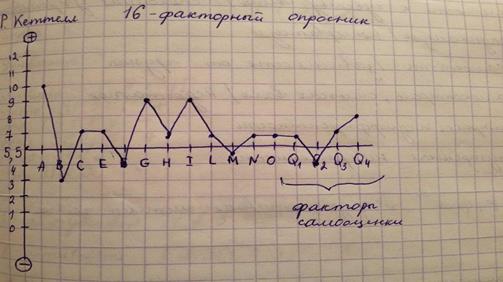 Р. Кеттелл 16-факторный опросник
+
12
11
10
9
8
7
6
5,5
5
4
3
2
1
0
−
A B C E F G H I L M N O Q1 Q2 Q3 Q4
факторы
самооценки